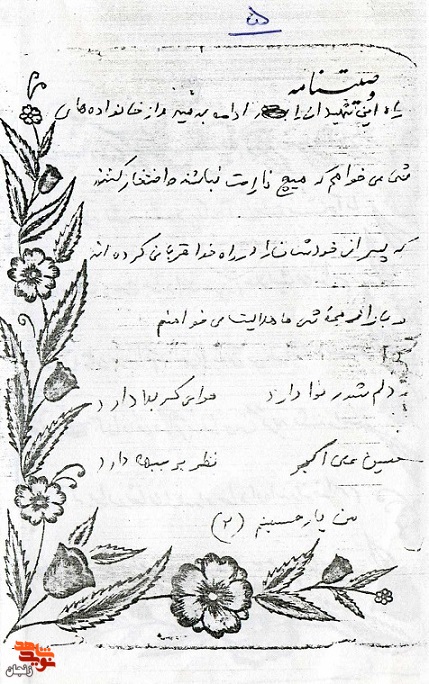 ۵
وصیتنامه
راه این شهیدان را ادامه بدهید و از خانواده‌های
شان می خواهم که هیچ ناراحت نباشند و افتخار کنند
که پسران خودشان را در راه خدا قربانی کرده اند
و باز از همهٔ شما هدایت می خواهم
دلم شور نوا دارد هوای کربلا دارد
حسین علی اکبر نظر بر جبهه دارد
من یار حسینم (۲)
نوید شاهد
زنجان